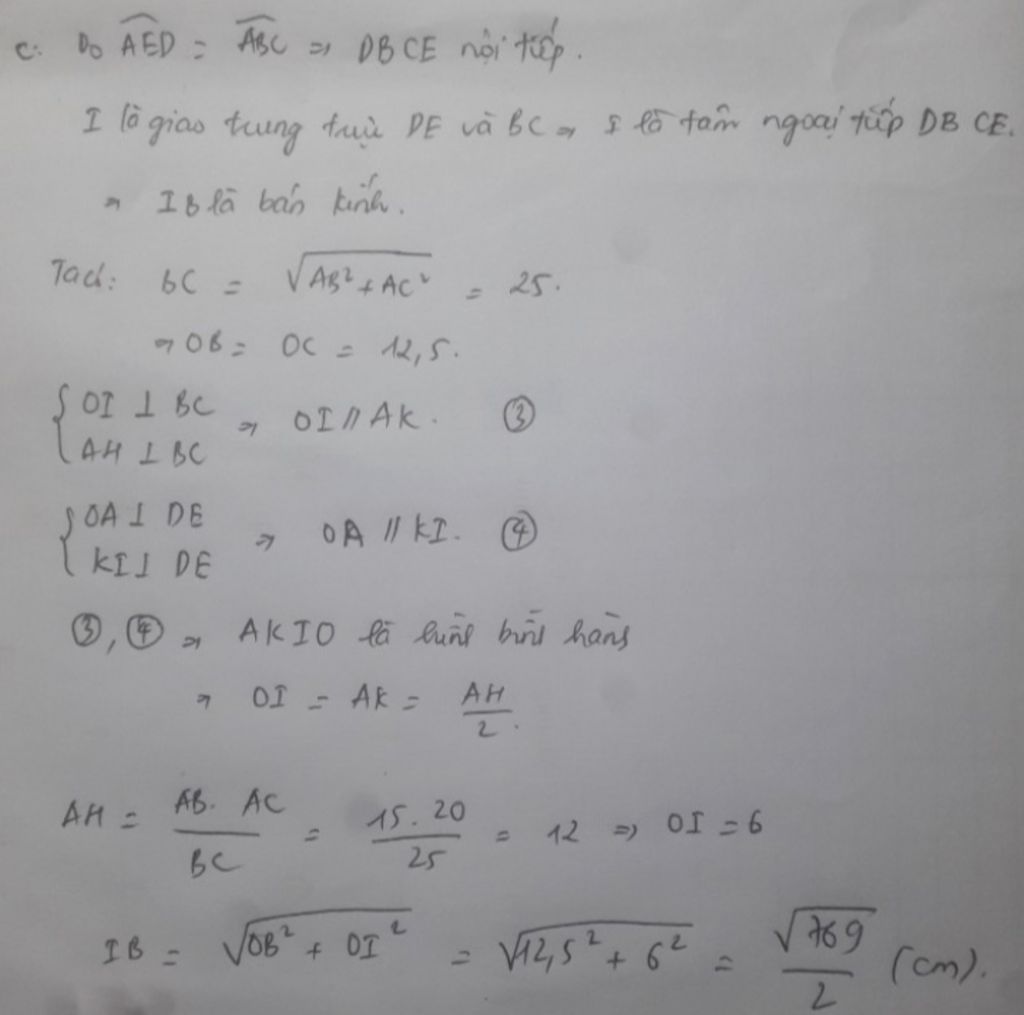 c. Do \widehat{AED} = \widehat{ABC} => DBCE nội tiếp.
I là giao trung trực DE và BC => I là tâm ngoại tiếp DBCE.
=> IB là bán kính.
Ta có: BC = \sqrt{AB² + AC²} = 25.
=> OB = OC = 12,5.
{ OI ⊥ BC
AH ⊥ BC => OI // AK. ③
{ OA ⊥ DE
KI ⊥ DE => OA // KI. ④
③, ④ => AKIO là hình bình hành
=> OI = AK = \frac{AH}{2}.
AH = \frac{AB. AC}{BC} = \frac{15. 20}{25} = 12 => OI = 6
IB = \sqrt{OB² + OI²} = \sqrt{12,5² + 6²} = \frac{\sqrt{769}}{2} (cm).